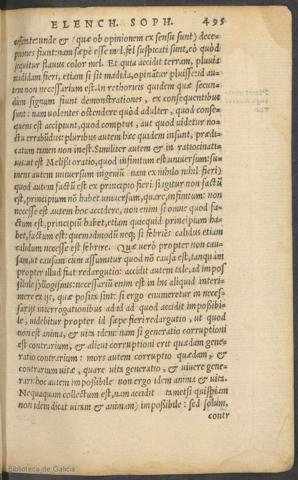 ELENCH. SOPH. 495
cõsiāt: unde & (quæ ob opinionem ex sensu sunt) dece-
ptiones fiunt: nam sæpè esse mel, fel suspicati sunt, eò quòd
sequitur flauus color mel. Et quia accidit terram, pluuia
madidam fieri, etiam si sit madida, opinātur pluisse: id au-
tem non necessarium est. In rethoricis quidem quæ secun-
dùm signum fiunt demonstrationes, ex consequentibus
sunt: nam uolentes ostendere quòd adulter, quod conse-
quens est accipiunt, quod comptus, aut quod uidetur no-
ctu errabūdus: pluribus autem hæc quidem insunt, prædi-
catum uero non inest. Similiter autem & in ratiocinati-
uis: ut est Melissi oratio, quod infinitum est uniuersum: su-
mens autem uniuersum ingenitū nam ex nihilo nihil fieri)
quod autem factū est ex principio fieri. si igitur non factū
est, principium nō habet uniuersum, quare, infinitum: non
necesse est autem hoc accidere, non enim si omne quod fa-
ctum est, principiū habet, etiam quicquid principium ha-
bet, factum est: quemadmodū neq; si febriēs calidus etiam
calidum necesse est febrire. Quæ uerò propter non cau-
sam, ut causam: cum assumitur quod nō causa est, tanquàm
propter illud fiat redargutio: accidit autem tale, ad impos
sibile syllogismis: necessariū enim est in his aliquid interi-
mere ex ijs, quæ posita sint: si ergo enumeretur in neces-
sarijs interrogationibus ad id ad quod accidit impossibi-
le, uidebitur propter id sæpe fieri redargutio, ut quod
non est anima, & uita idem: nam si generatio corruptioni
est contrarium, & alicui corruptioni erit quædam gene-
ratio contrarium: mors autem corruptio quædam, &
contrarium uitæ, quare uita generatio, & uiuere gene-
rari: hoc autem impossibile non ergo idem anima & uita.
Nequaquam collectum est, nam accidit tametsi quispiam
non idem dicat uitam & animam) impossibile: sed solum,
contr
Biblioteca de Galicia